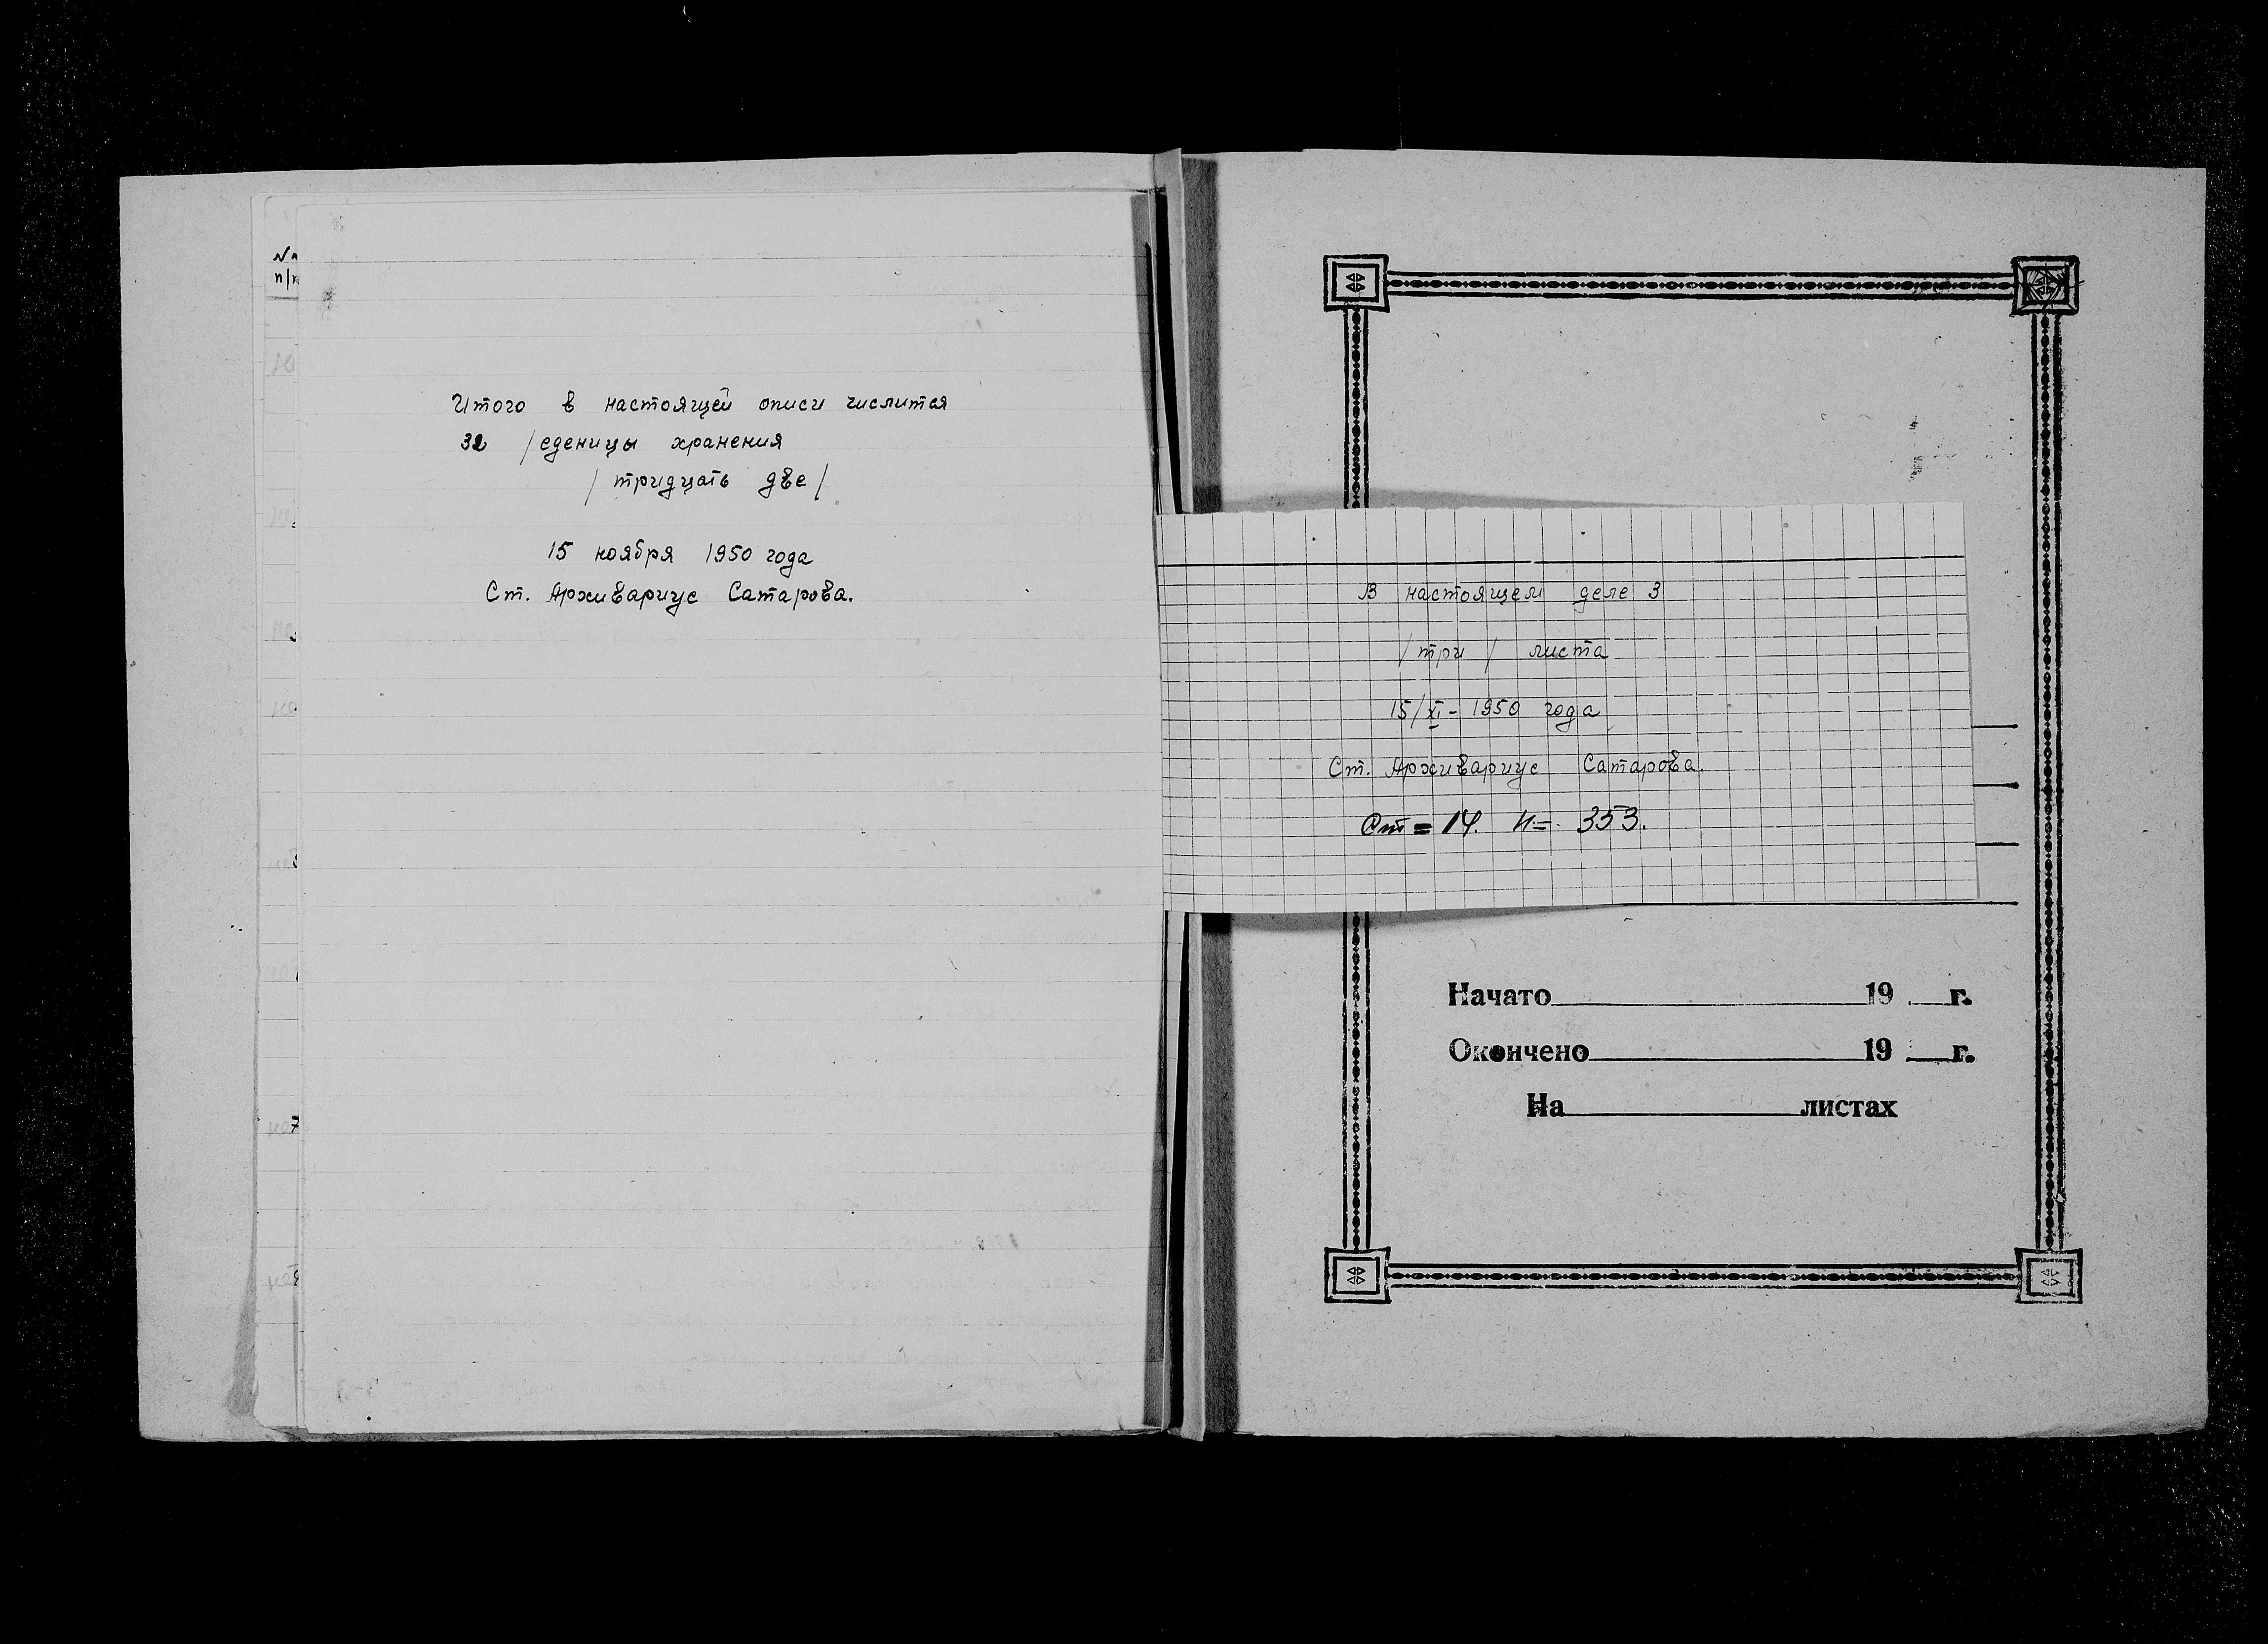 №№
п/п
Итого в настоящей описи числится
32 /еденицы хранения
/тридцать две/
15 ноября 1950 года
Ст. Архивариус Сатарова.
В настоящем деле 3
/три/ листа
15/XI - 1950 года
Ст. Архивариус Сатарова.
Ст = 14. н = 353.
Начато 19 г.
Окончено 19 г.
На листах